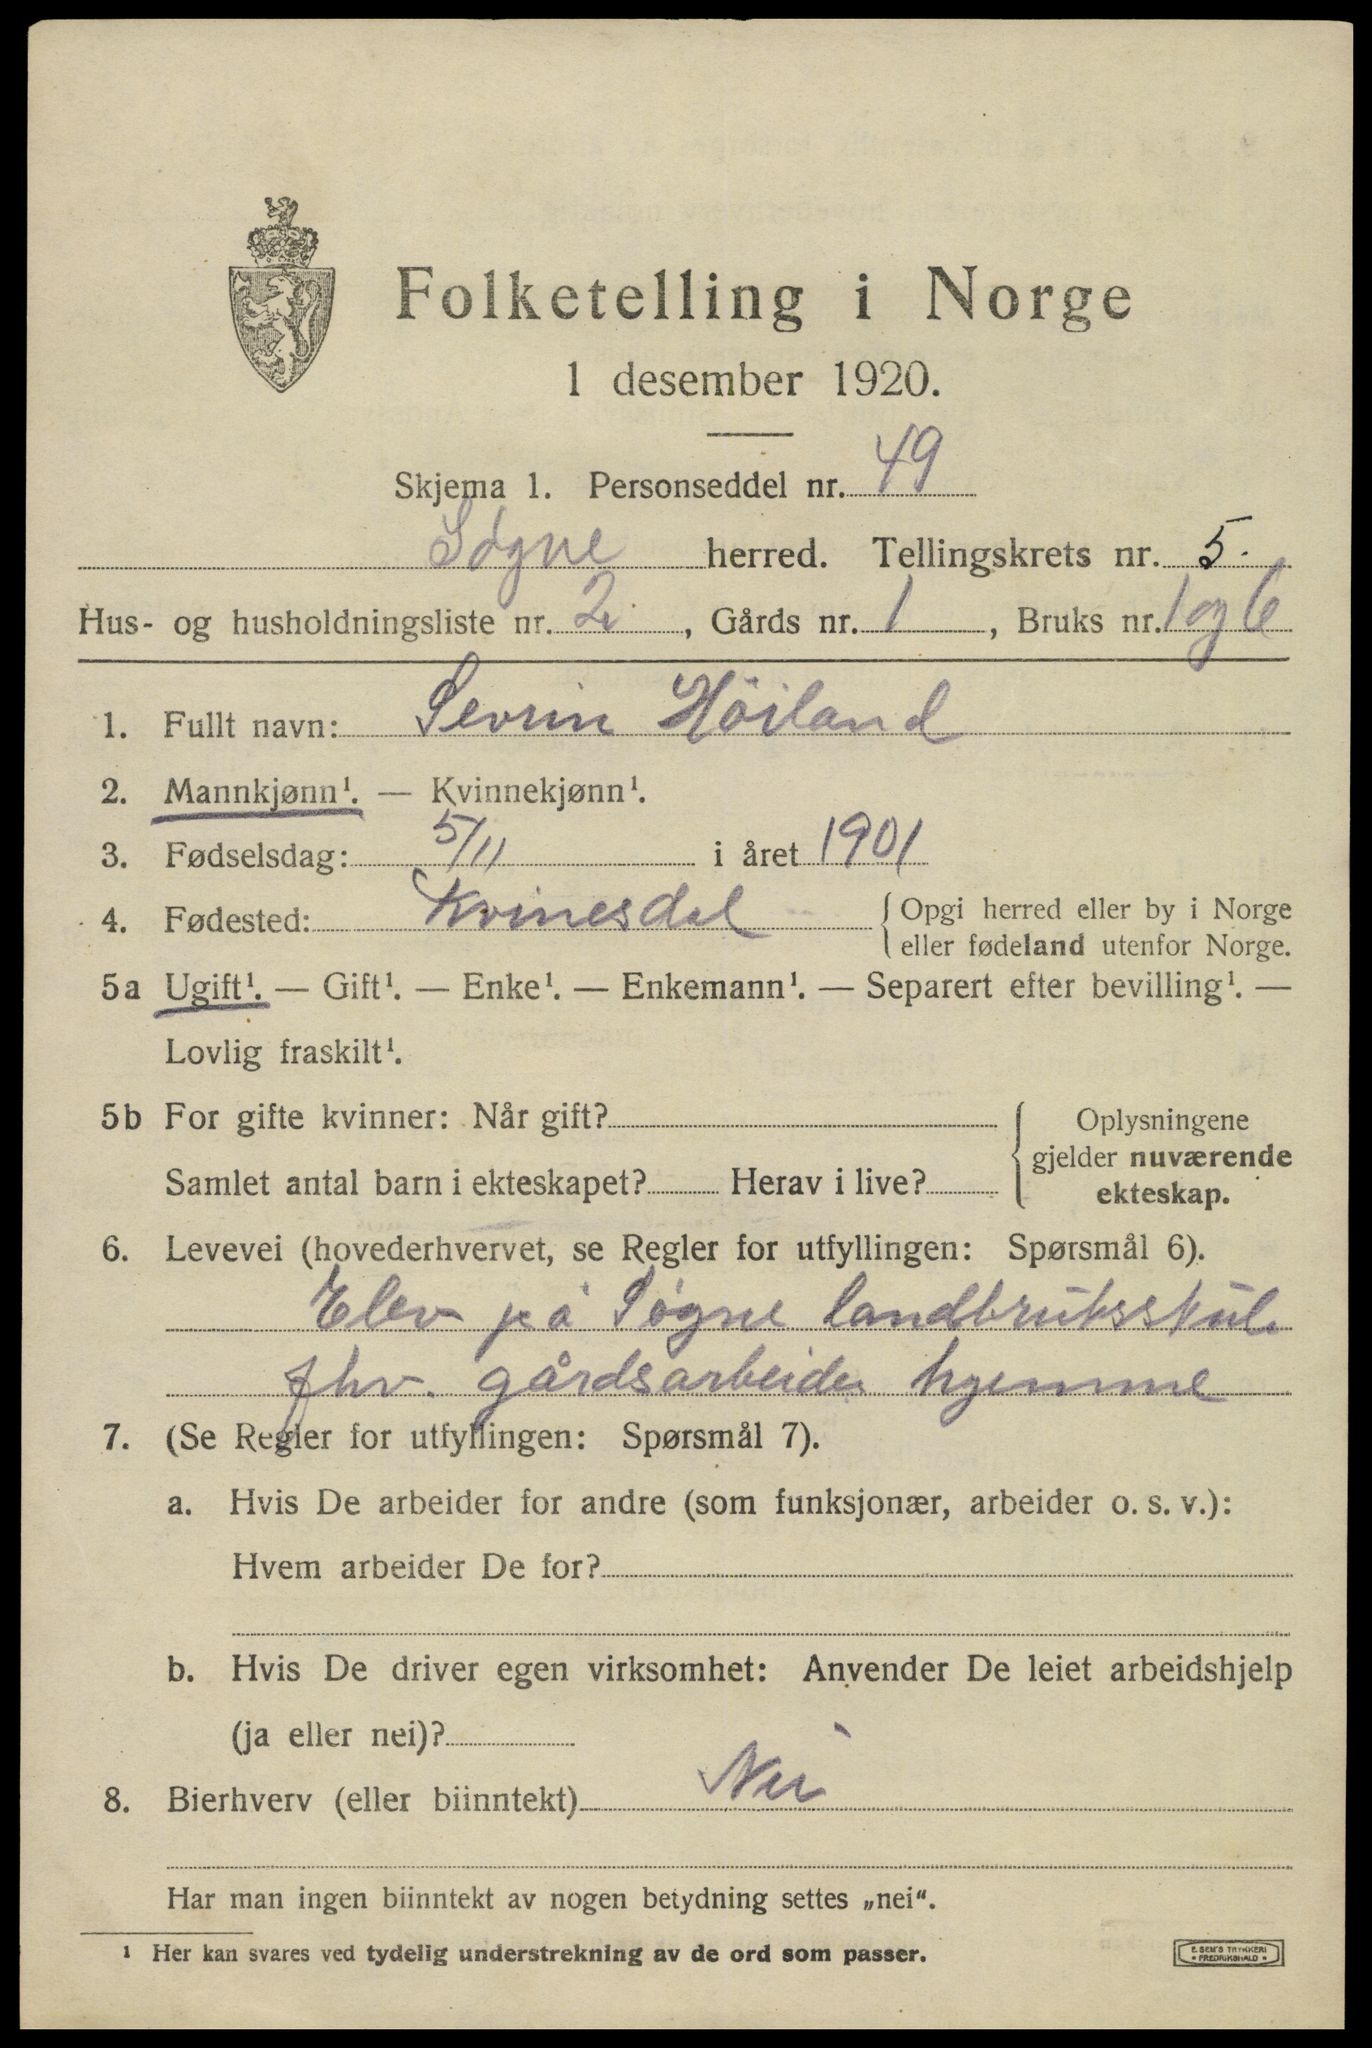 Folketelling i Norge
1 desember 1920.
Skjema 1. Personseddel nr. 49
Søgne herred. Tellingskrets nr. 5.
Hus- og husholdningsliste nr. 2, Gårds nr. 1, Bruks nr. 1 og 6
1. Fullt navn: Sevrin Höiland
2. Mannkjønn¹. — Kvinnekjønn¹.
3. Fødselsdag: 5/11 i året 1901
4. Fødested: Kvinesdal { Opgi herred eller by i Norge
eller fødeland utenfor Norge.
5a Ugift¹. — Gift¹. — Enke¹. — Enkemann¹. — Separert efter bevilling¹. —
Lovlig fraskilt¹.
5b For gifte kvinner: Når gift? { Oplysningene
gjelder nuværende
Samlet antal barn i ekteskapet? Herav i live? ekteskap.
6. Levevei (hovederhvervet, se Regler for utfyllingen: Spørsmål 6).
Elev på Søgne landbruksskule
fhv. gårdsarbeider hjemme
7. (Se Regler for utfyllingen: Spørsmål 7).
a. Hvis De arbeider for andre (som funksjonær, arbeider o. s. v.):
Hvem arbeider De for?
b. Hvis De driver egen virksomhet: Anvender De leiet arbeidshjelp
(ja eller nei)?
8. Bierhverv (eller biinntekt) Nei
Har man ingen biinntekt av nogen betydning settes „nei“.
¹ Her kan svares ved tydelig understrekning av de ord som passer.
E. SEM'S TRYKKERI
• FREDRIKSHALD •